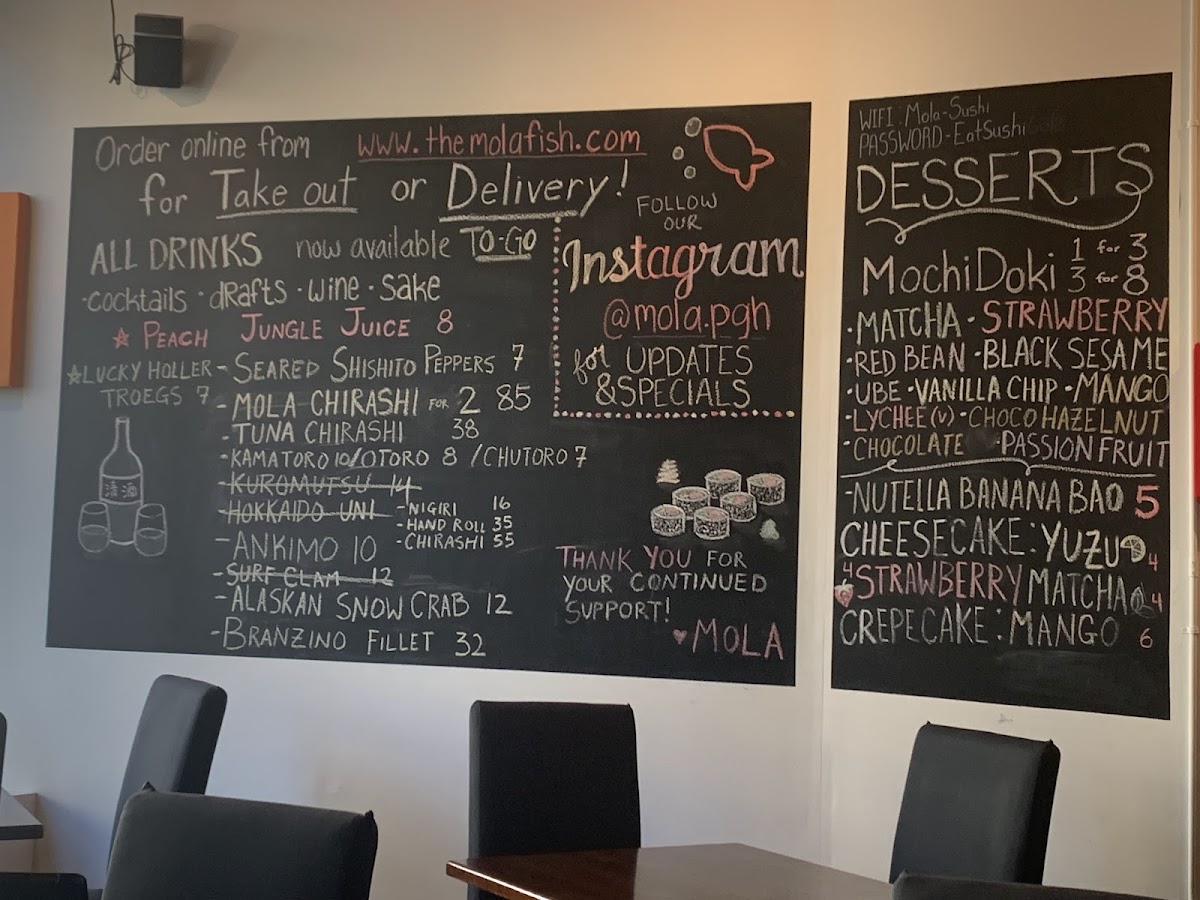 Order online from www.themolafish.com
for Take out or Delivery!
ALL DRINKS now available TO-GO
·cocktails ·dRafts ·wine ·Sake
☆ PEACH JUNGLE JUICE 8
☆LUCKY HOLLER
TROEGS 7
- SEARED SHISHITO PEPPERS 7
- MOLA CHIRASHI FOR 2 85
- TUNA CHIRASHI 38
- KAMATORO 10/OTORO 8 /CHUTORO 7
- KUROMUTSU 14
- HOKKAIDO UNI - NIGIRI 16
- HAND ROLL 35
- CHIRASHI 55
- ANKIMO 10
- SURF CLAM 12
- ALASKAN SNOW CRAB 12
- BRANZINO FILLET 32
FOLLOW
OUR
Instagram
@mola.pgh
for UPDATES
&SPECIALS
THANK YOU FOR
YOUR CONTINUED
SUPPORT!
♥MOLA
WIFI: Mola-Sushi
PASSWORD-EatSushi
DESSERTS
MochiDoki 1 for 3
3 for 8
·MATCHA ·STRAWBERRY
·RED BEAN ·BLACK SESAME
·UBE ·VANILLA CHIP ·MANGO
·LYCHEE(v) ·CHOCO HAZELNUT
·CHOCOLATE ·PASSION FRUIT
-NUTELLA BANANA BAO 5
CHEESECAKE: YUZU 4
4 STRAWBERRY MATCHA 4
CREPECAKE: MANGO 6